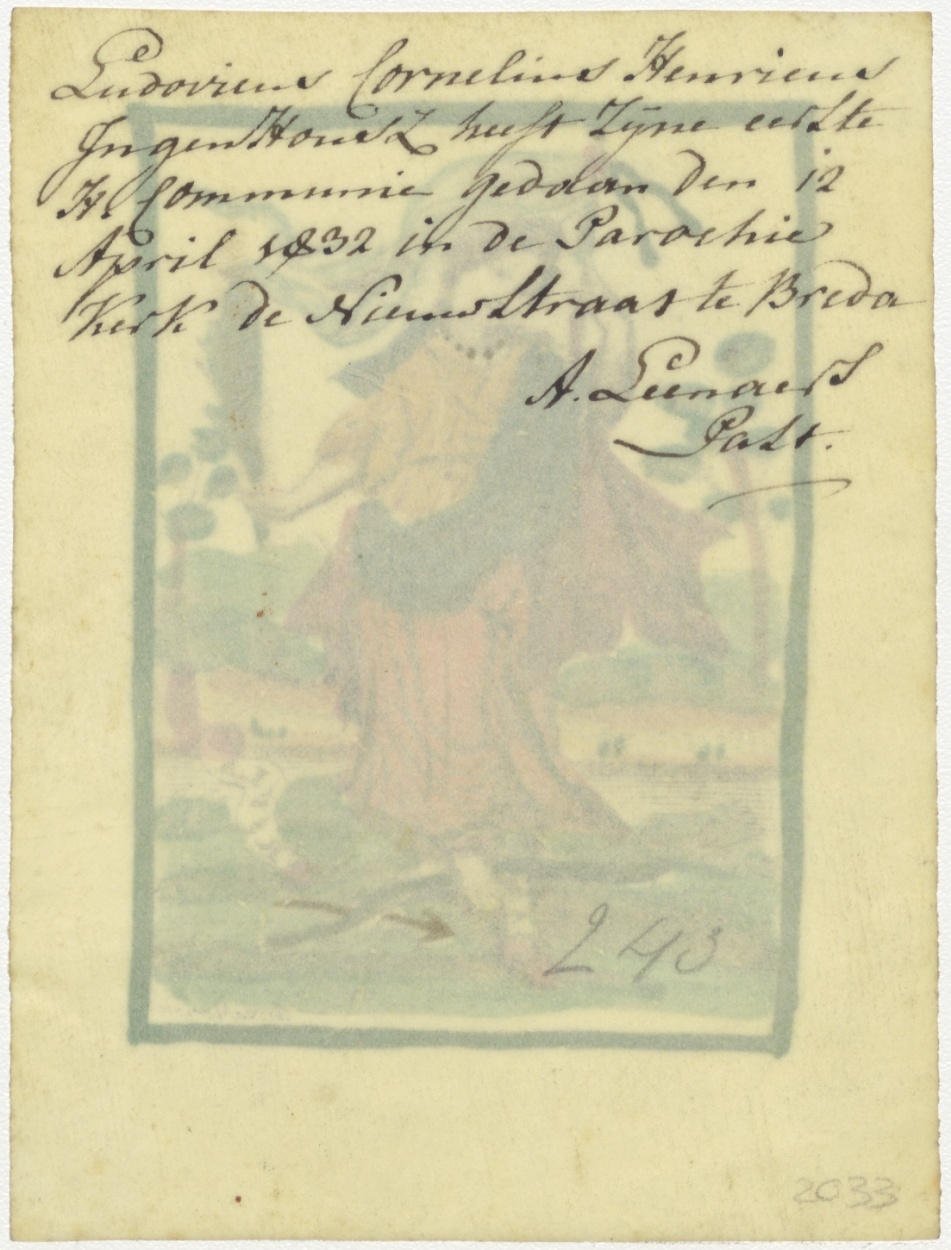 Ludovicus Cornelius Henricus
IngenHousz heeft Zyne eerste
H. Communie gedaan den 12
April 1832 in de Parochie
Kerk de Nieuwstraat te Breda
A. Leenaers
Past.
243
2033